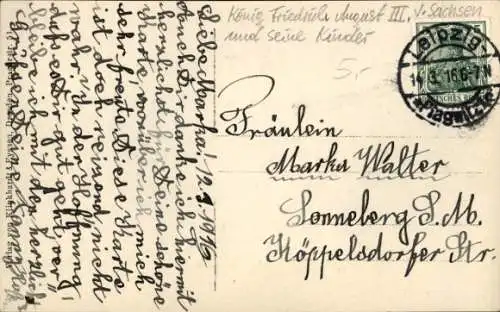 König Friedrich August III, v. Sachsen
und seine Kinder
5.-
Leipzig-
14.3.16.6-7N
Plagwitz
Fräulein
Marka Walter
Sonneberg S. M.
Köppelsdorfer Str.
Liebe Marka! 12.3.1916
Auch Dir danke ich hiermit
herzlichst für Deine schöne
Karte, worüber ich mich
sehr freute. Diese Karte
ist doch reizend, nicht
wahr? In der Hoffnung,
daß es dir gut geht, ver-
bleibe ich mit den herzlich.
Grüßen Deine